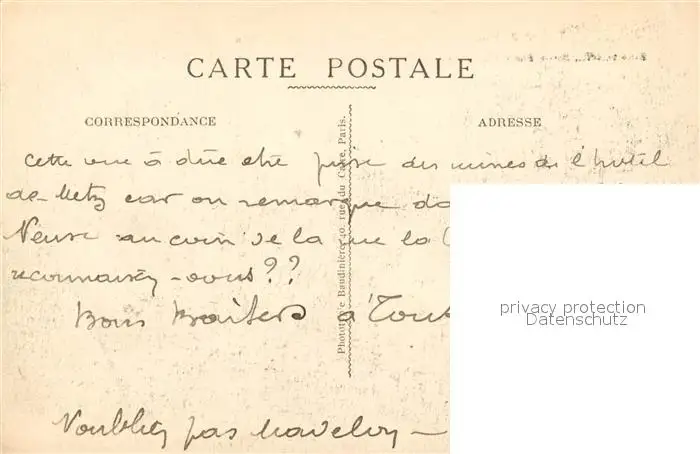 CARTE POSTALE
CORRESPONDANCE
ADRESSE
Phototypie Baudinière, 40, rue du Caire, Paris.
Cette vue a dûe etre prise des ruines de l'hotel
de Metz car on remarque
Meuse au coin de la rue la
reconnaissez-vous??
Bons Baisers à Tou
N'oubliez pas
privacy protection
Datenschutz